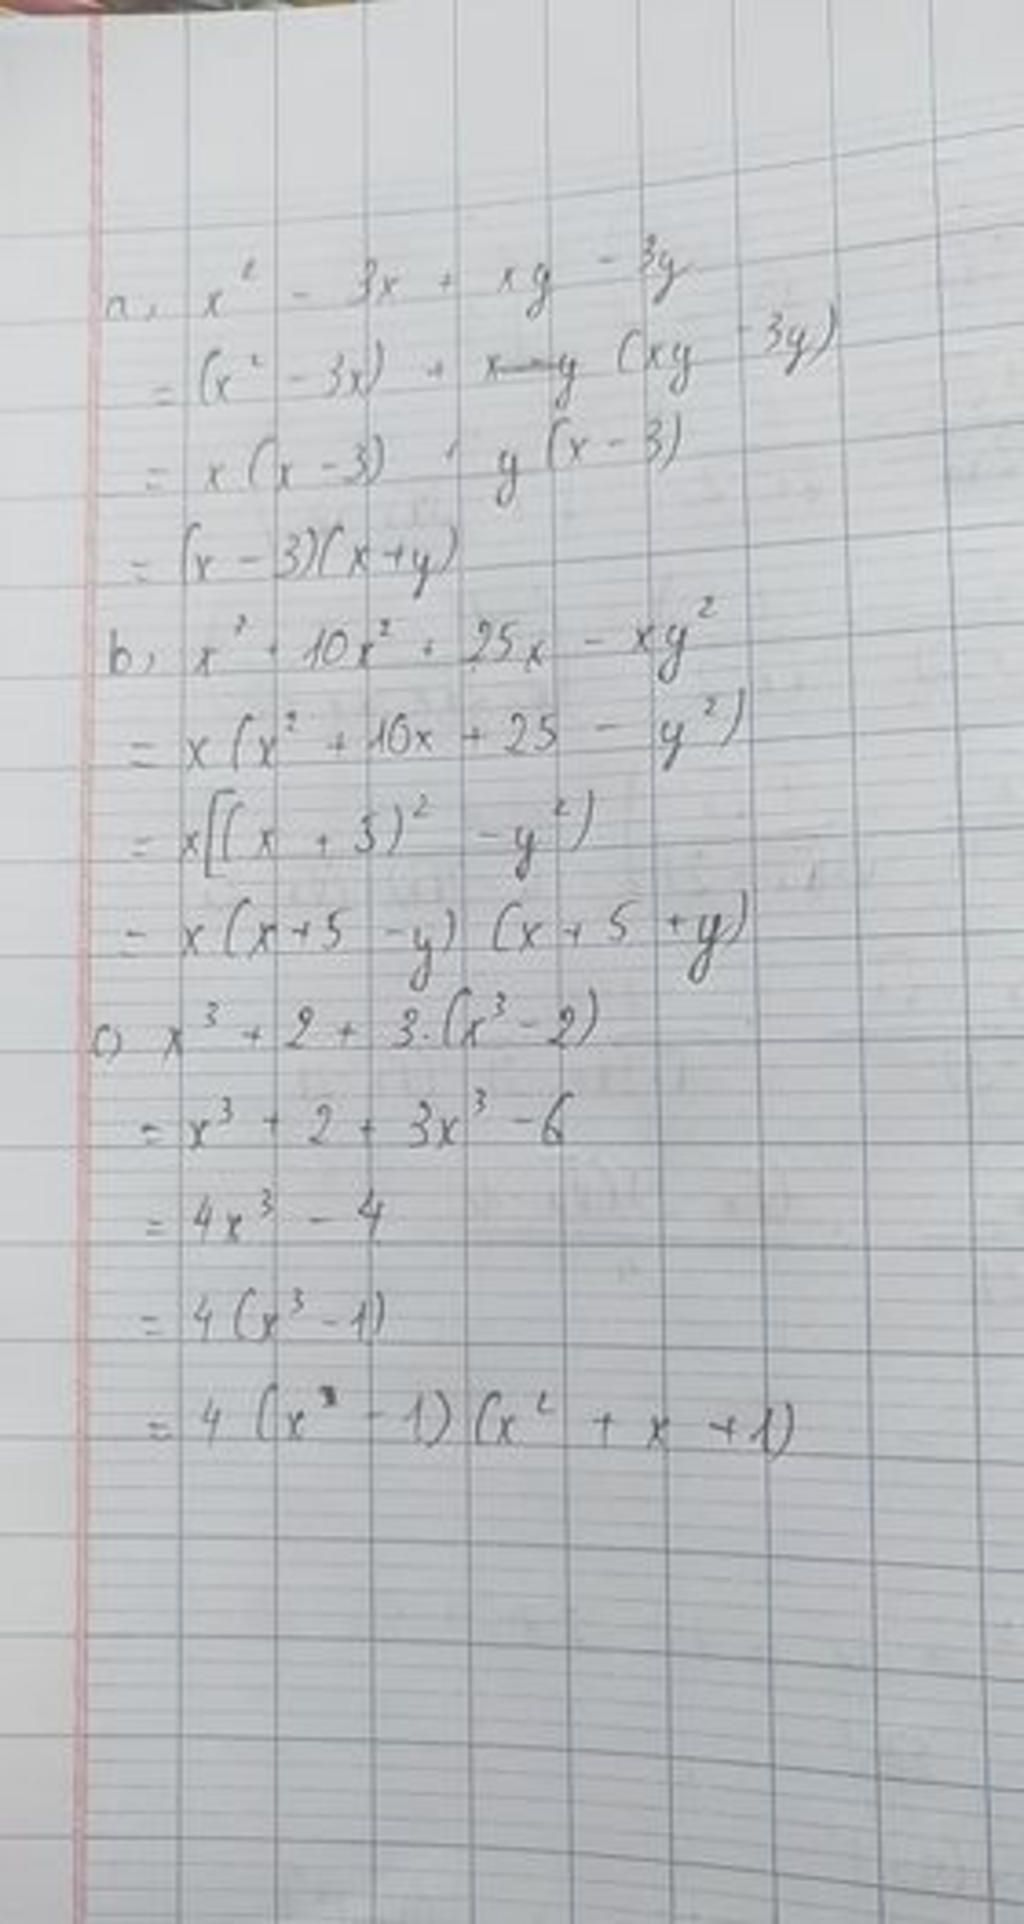 a, x² - 3x + xy - 3y
= (x² - 3x) + (xy - 3y)
= x(x - 3) + y(x - 3)
= (x - 3)(x + y)
b, x³ + 10x² + 25x - xy²
= x(x² + 10x + 25 - y²)
= x[(x + 5)² - y²)
= x(x + 5 - y) (x + 5 + y)
c) x³ + 2 + 3.(x³ - 2)
= x³ + 2 + 3x³ - 6
= 4x³ - 4
= 4(x³ - 1)
= 4(x - 1)(x² + x + 1)